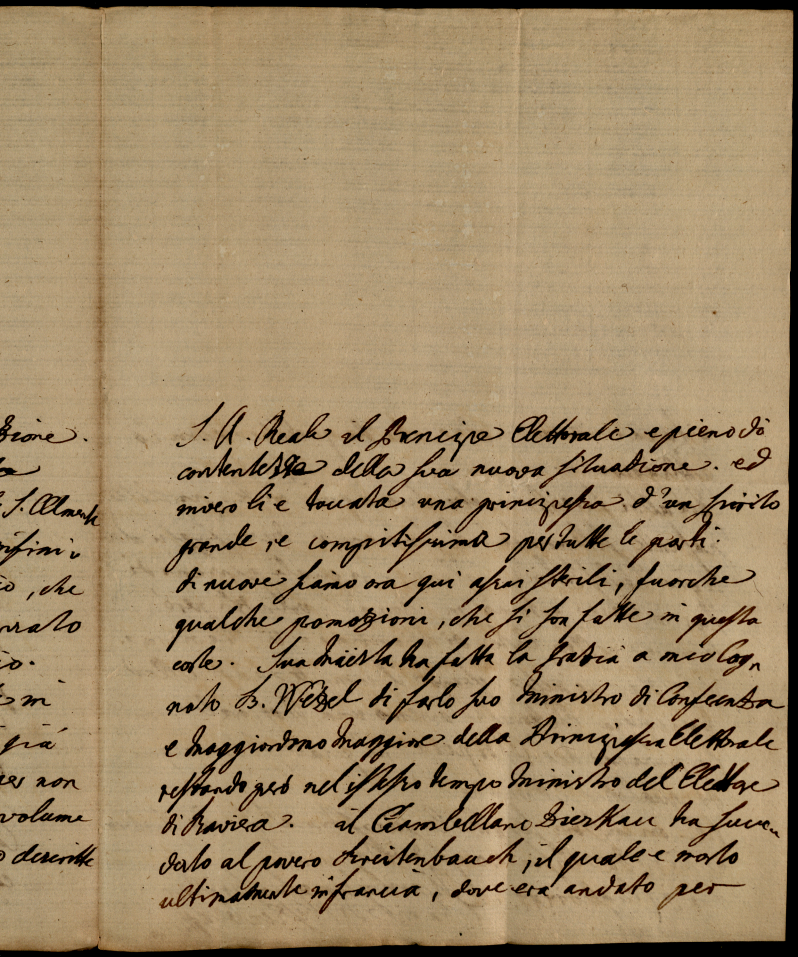 zione.
S. A. Reale il Prencipe Elettorale e pieno di
contentezze della sua nuova situazione. ed
in vero li e toccata una principessa d'un spirito
grande, e compitissima per tutte le parti.
di nuove siamo ora qui assai sterili, fuorche
qualche pomozioni, che si son fatte in questa
corte. Sua Maesta ha fatta la grazia a mio Cog,,
nato B. Wezel di farlo suo Ministro di Conferenza
e Maggiordomo Maggiore della Principessa Elettorale
restando però nel istesso tempo Ministro del Elettore
di Baviera. il Ciambellano Zierkau ha succe,,
duto al povero Breitenbauch, il quale e morto
ultimamente in francia, dove era andato per
S. Alma
infini
io, che
io.
e mi
già
per non
volume
o descritte